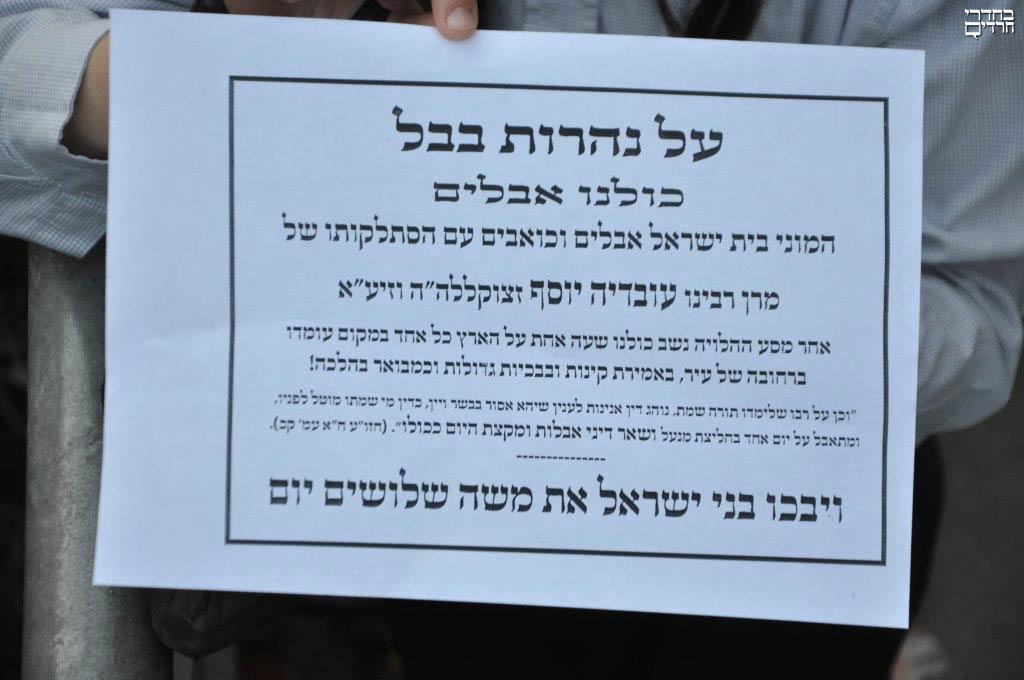 בחדרי
חרדים
על נהרות בבל
כולנו אבלים
המוני בית ישראל אבלים וכואבים עם הסתלקותו של
מרן רבינו עובדיה יוסף זצוקללה"ה וזיע"א
אחר מסע ההלויה נשב כולנו שעה אחת על הארץ כל אחד במקום עומדו
ברחובה של עיר, באמירת קינות ובבכיות גדולות וכמבואר בהלכה!
"וכן על רבו שלימדו תורה שמת, נוהג דין אנינות לענין שיהא אסור בבשר ויין, כדין מי שמתו מוטל לפניו,
ומתאבל על יום אחד בחליצת מנעל ושאר דיני אבלות ומקצת היום ככולו". (חזו"ע ח"א עמ' קב).
---------------
ויבכו בני ישראל את משה שלושים יום